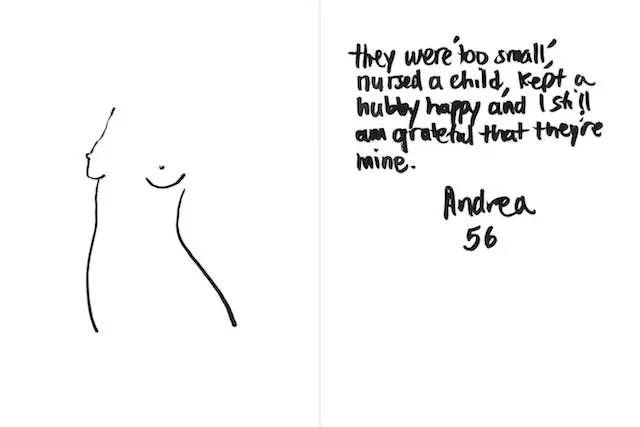 they were 'too small',
nursed a child, kept a
hubby happy and I still
am grateful that they're
mine.
Andrea
56